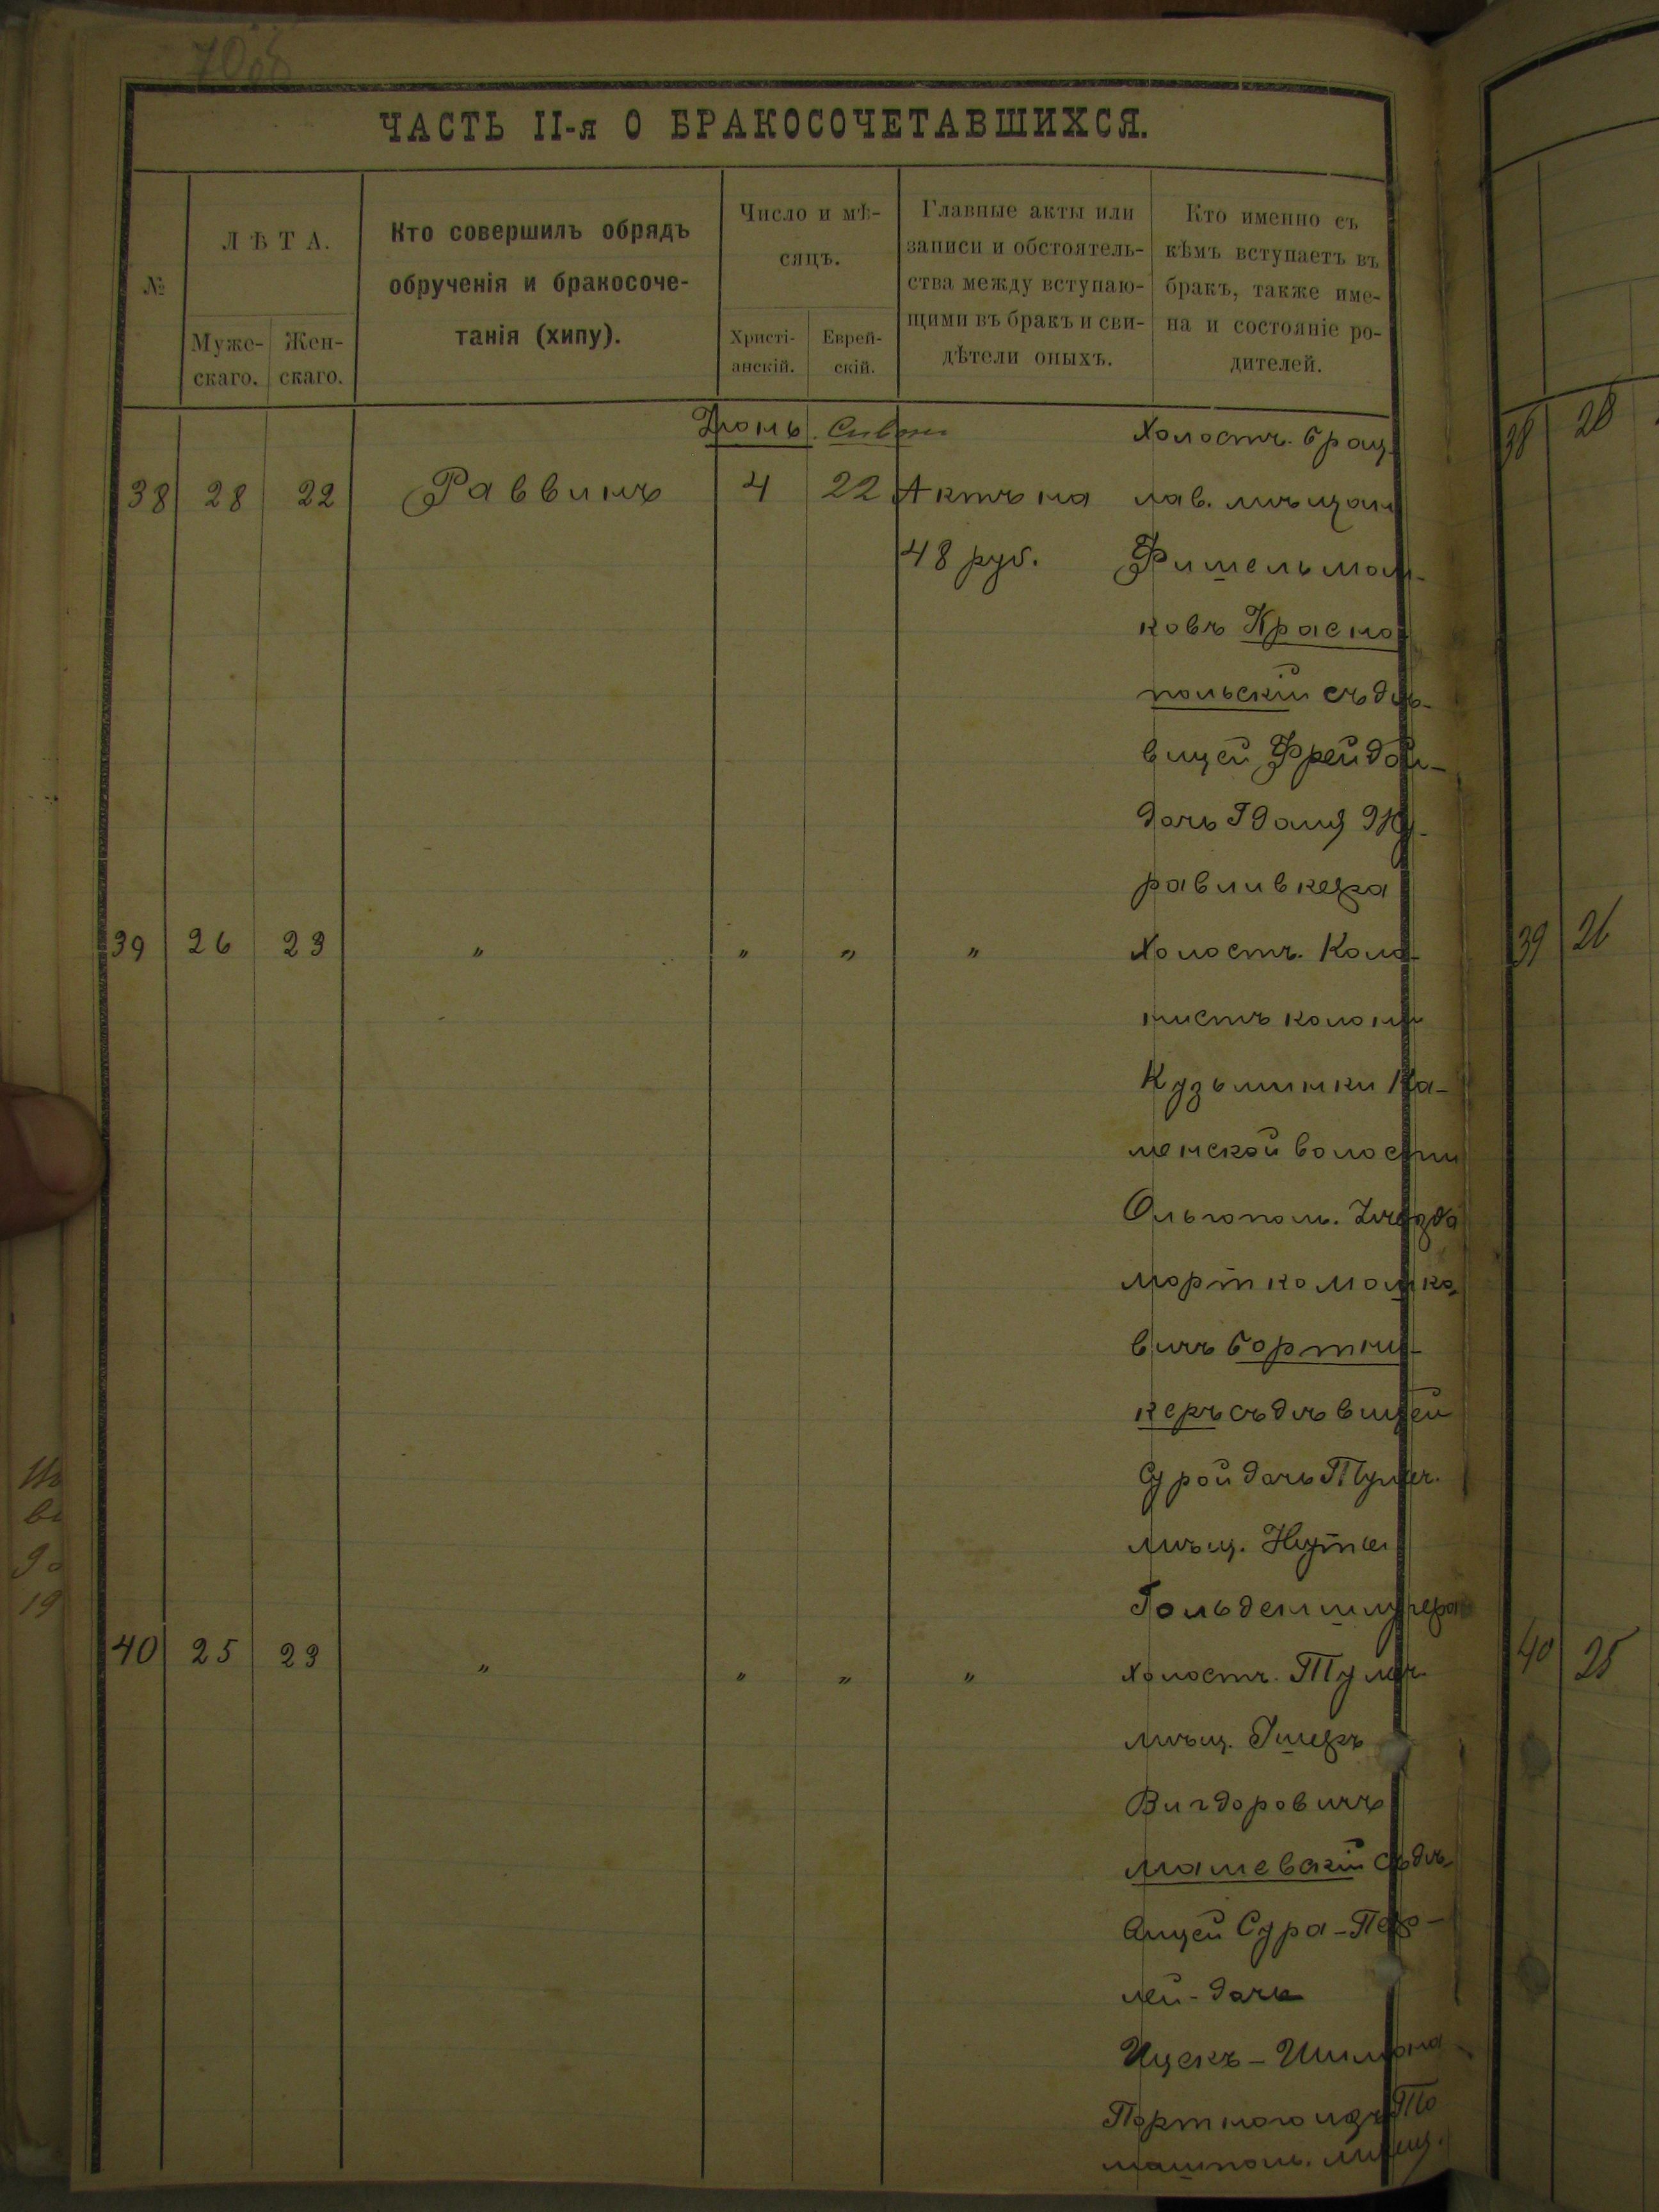 70об
ЧАСТЬ II-я О БРАКОСОЧЕТАВШИХСЯ.
№
ЛѢТА.
Муже-
скаго.
Жен-
скаго.
Кто совершилъ обрядъ
обрученія и бракосоче-
танія (хипу).
Число и мѣ-
сяцъ.
Христі-
анскій.
Еврей-
скій.
Главные акты или
записи и обстоятель-
ства между вступаю-
щими въ бракъ и сви-
дѣтели оныхъ.
Кто именно съ
кѣмъ вступаетъ въ
бракъ, также име-
на и состояніе ро-
дителей.
Іюнь. Сивон
38 28 22 Раввинъ 4 22 Актъ на
48 руб.
Холостъ. брац
лав. мѣщан
Фишель мош-
ковъ Красно
польскій съ дѣ-
вицей Фрейдой-
дочь Удоня Жу-
равливкера
39 26 23 " " " "
Холостъ. Коло-
нистъ колоніи
Кузьминки Ка-
менской волости
Ольгопол. уѣзда
мортко мошко
вичъ бортни-
керъ съ дѣвицей
Сурой дочь Тульч.
мѣщ. Нуты
40 25 23 " " " "
Холостъ. Тульч.
мѣщ.
Вигдоровичъ
машевскій съ дѣ-
вицей Сура-Пер-
лей-дочь
Ицекъ-Шимона
Портного изъ То
машпол. мѣщ.
38 28
39 26
40 25